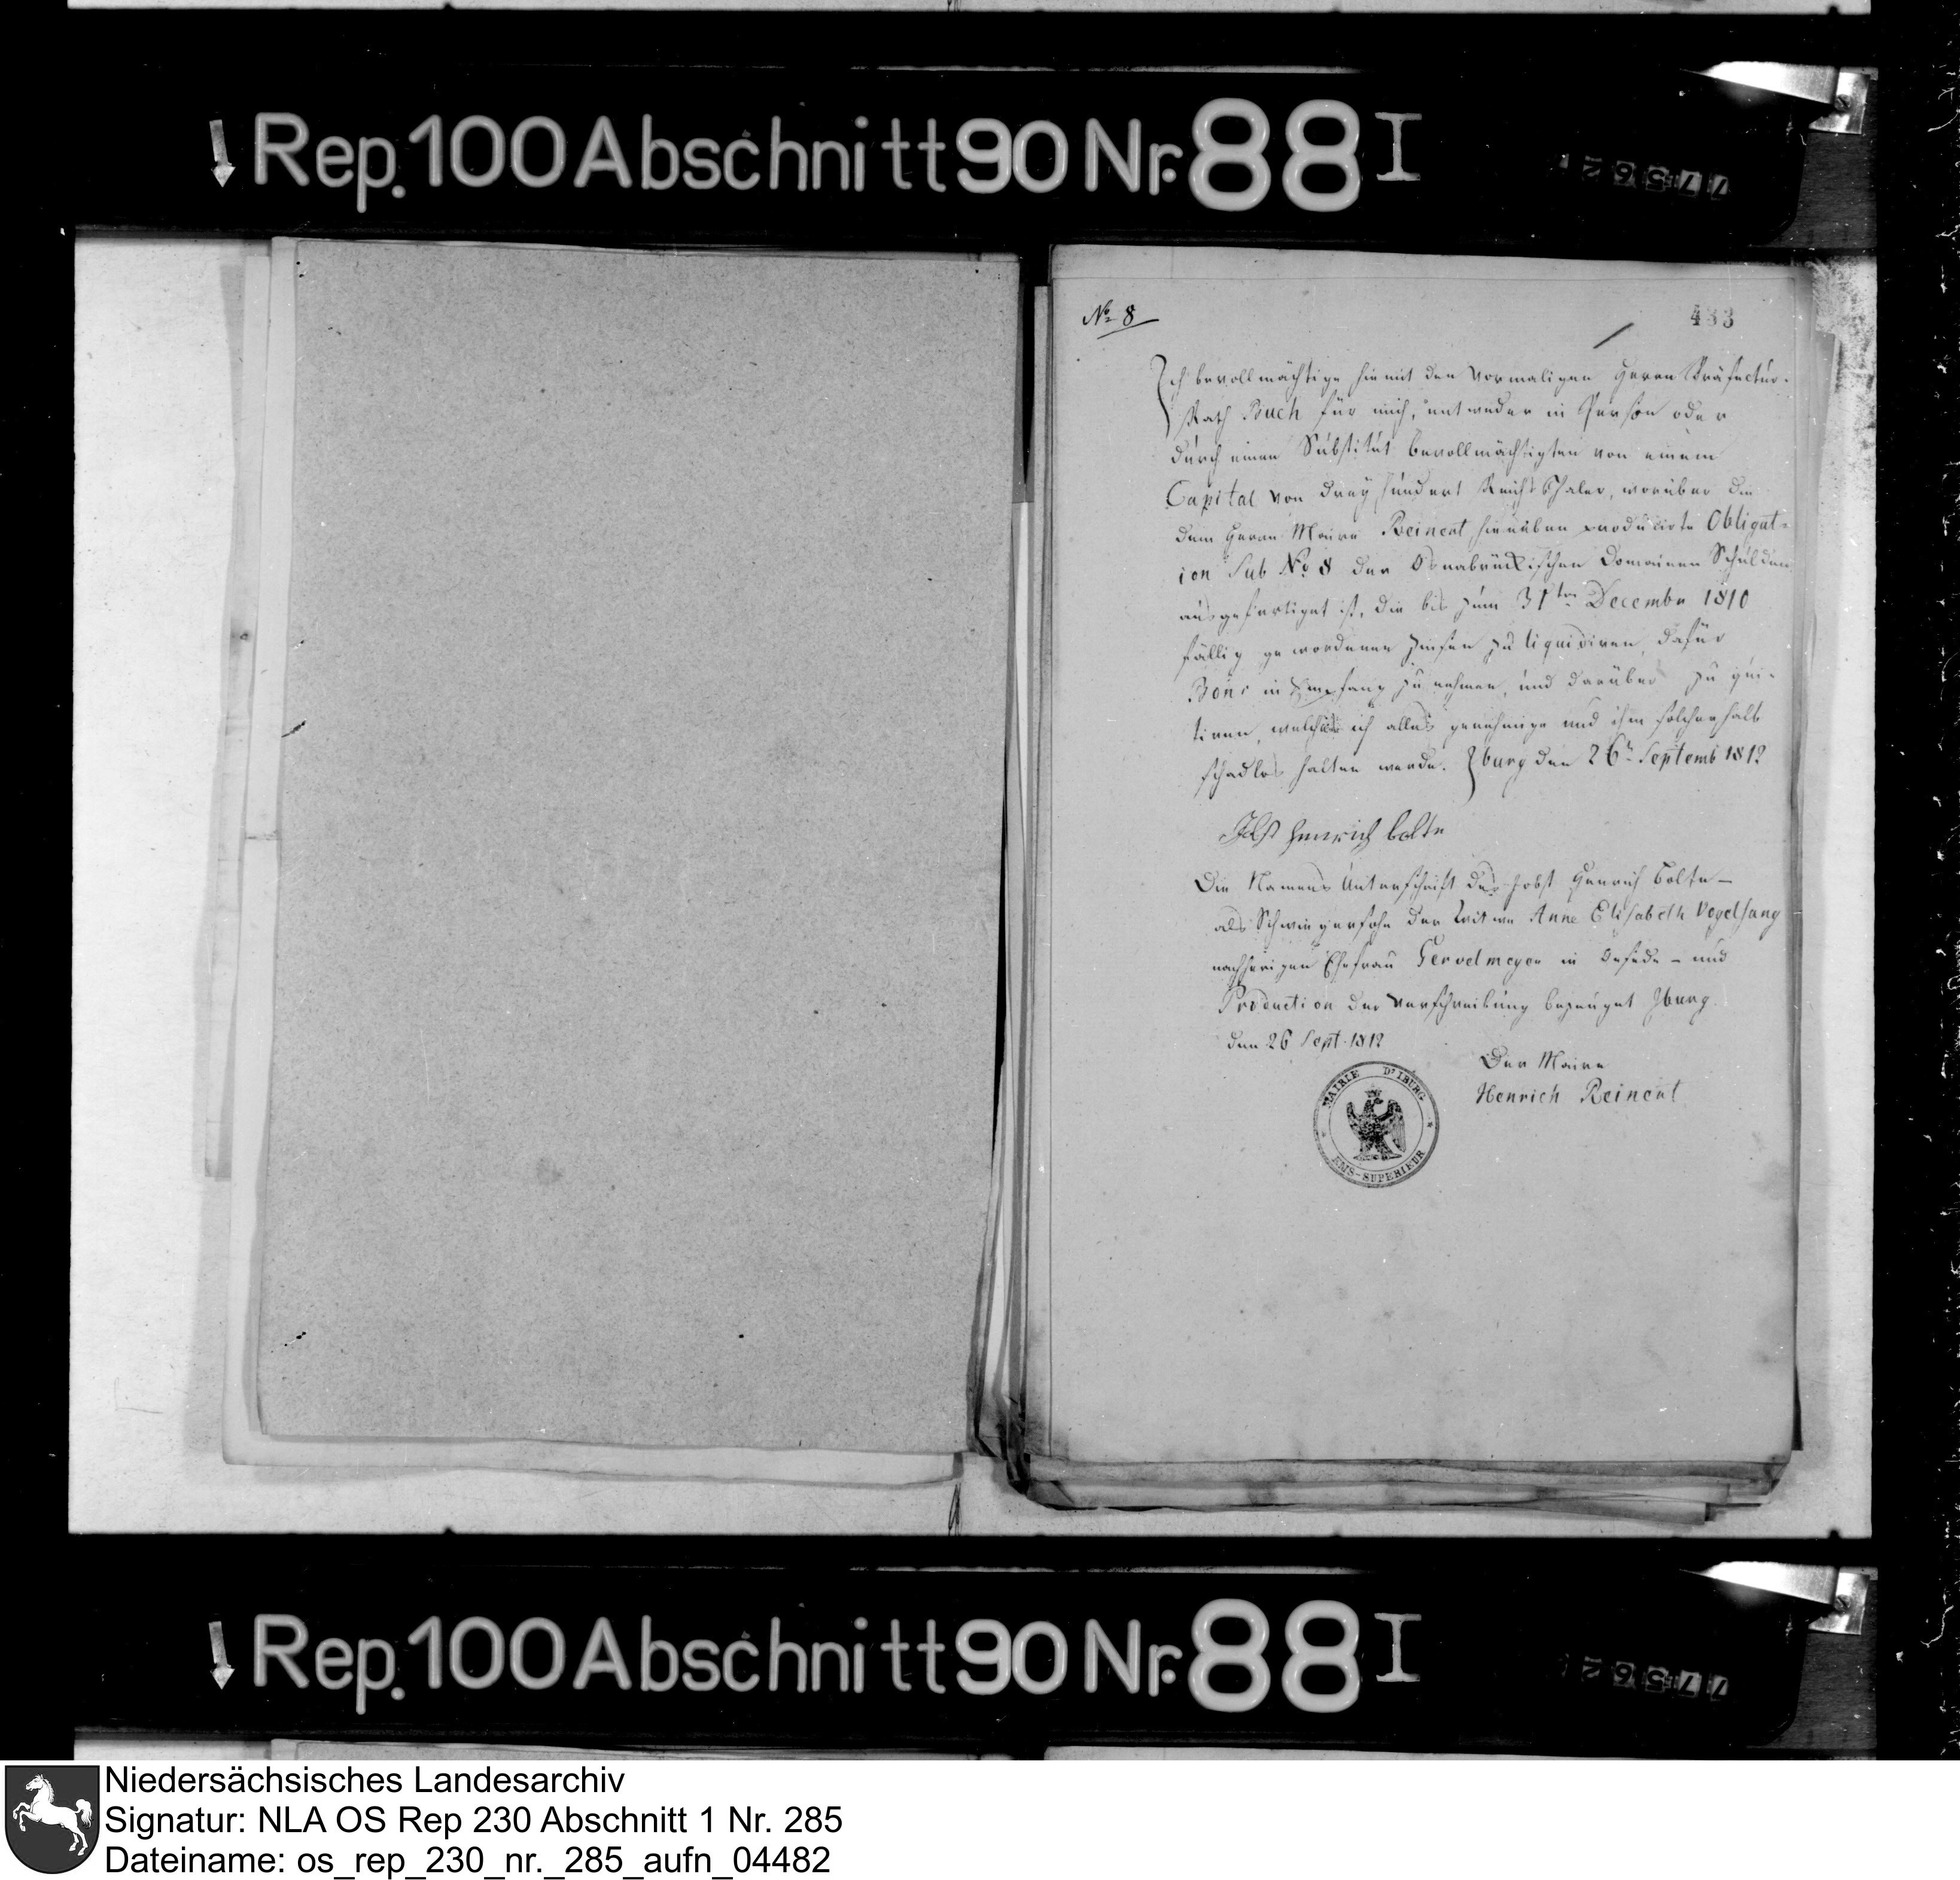 Rep. 100 Abschnitt 90 Nr. 88 I
77562
No 8
483
Ich bevollmächtige hiemit den vormaligen Herrn Präfectur-
Rath Buch für mich, entweder in Person oder
durch einen Substitut bevollmächtigten von einem
Capital von dreyhundert Reichsthaler, worüber die
dem Herrn Maire Reinert hierüber producirte Obligat-
ion sub No 8 der Osnabrückischen Domainen Schulden
ausgefertiget ist, die bis zum 31ten December 1810
fällig gewordenen Zinsen zu liquidiren, dafür
Bons in Empfang zu nehmen, und darüber zu qui-
tiren, welches ich alles genehmige und ihm solcherhalb
schadlos halten werde. Iburg den 26t Septemb 1812
Jobst Henrich bolte
Die Namens Unterschrift des Jobst Henrich Bolte -
als Schwiegersohn der Witwe Anne Elisabeth Vogelsang
nachherigen Ehefrau in Oesede - und
Production der Verschreibung bezeuget Iburg
den 26 Sept. 1812
Der Maire
Henrich Reinert
MAIRIE D'IBURG
EMS-SUPERIEUR
Rep. 100 Abschnitt 90 Nr. 88 I
77562
Niedersächsisches Landesarchiv
Signatur: NLA OS Rep 230 Abschnitt 1 Nr. 285
Dateiname: os_rep_230_nr._285_aufn_04482